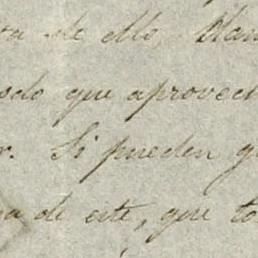 de ello,
que aprovech
Si pueden
de este, que to